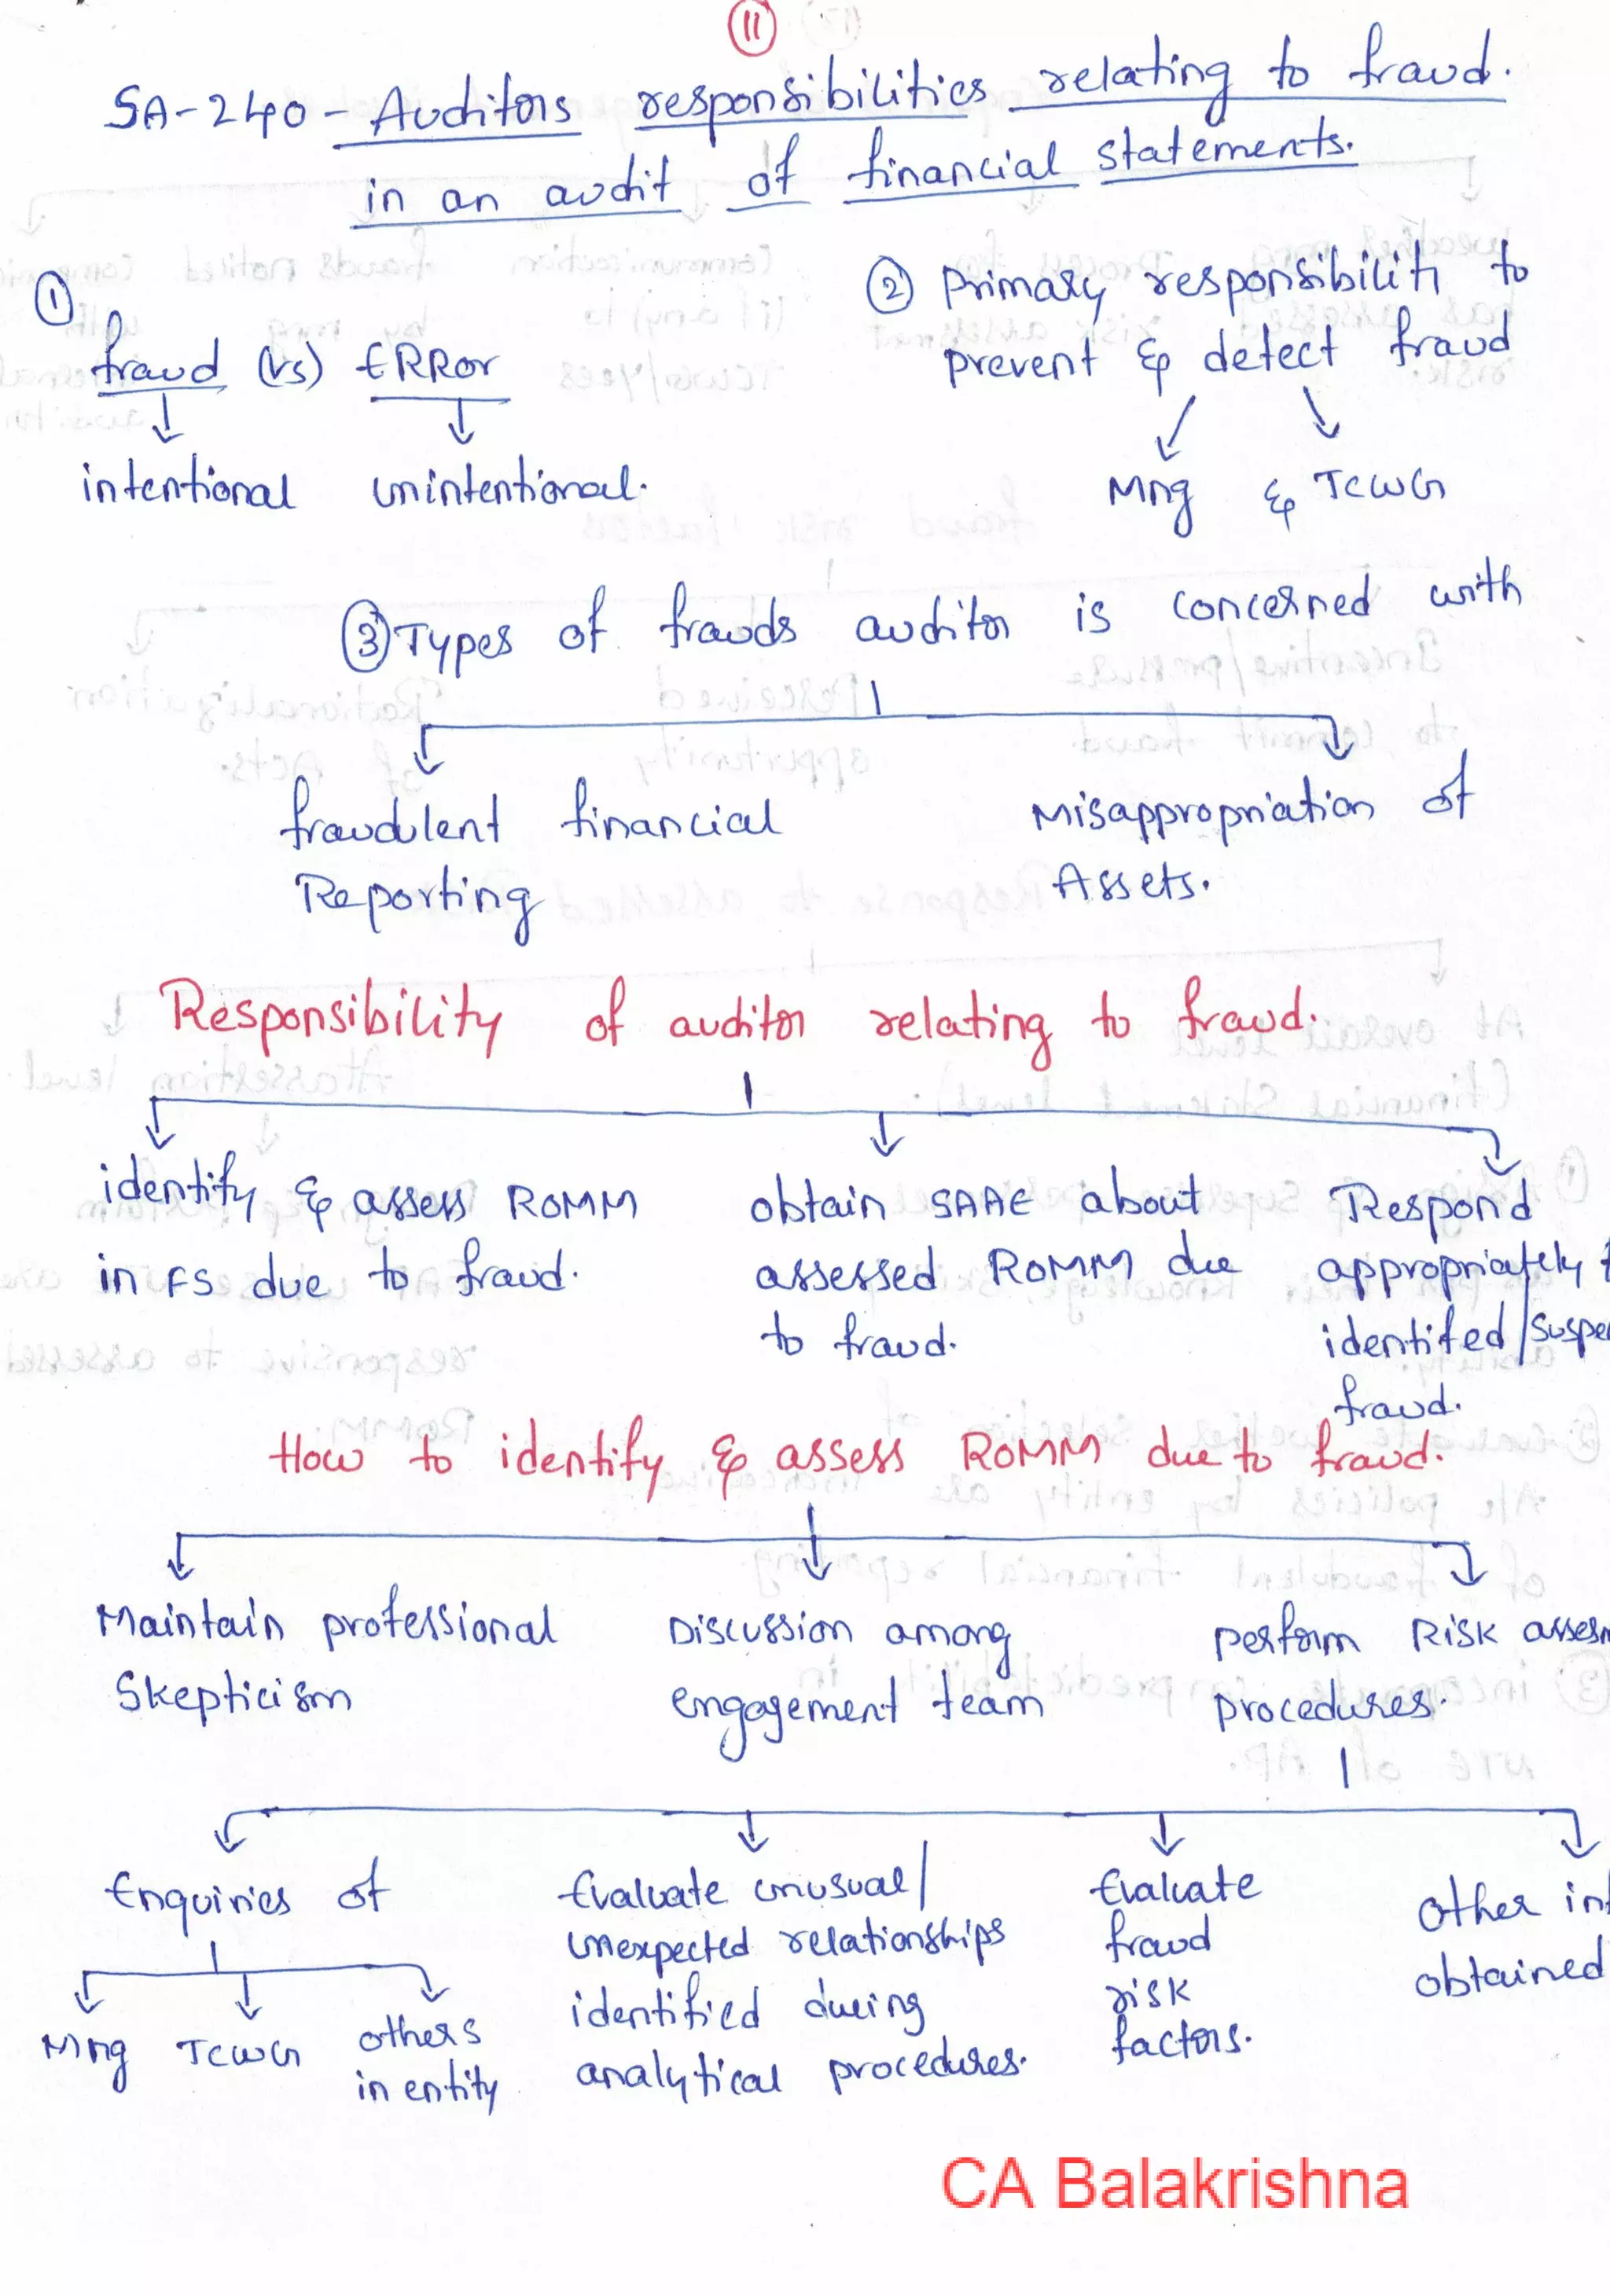 11
SA-240 - Auditors responsibilities relating to fraud.
in an audit of financial statements.
①
fraud (vs) ERRor
intentional unintentional.
② Primary responsibiliti to
prevent & detect fraud
Mng & TCWG
③ Types of frauds auditor is concerned with
fraudulent financial
Reporting
Misappropriation of
Assets.
Responsibility of auditor relating to fraud.
identify & assess ROMM
in FS due to fraud.
obtain SAAE about
assessed ROMM due
to fraud.
Respond
appropriately
identifed/suspe
fraud.
How to identify & assess ROMM due to fraud.
Maintain professional
Skepticism
Discussion among
engagement team
perform Risk assesm
procedures.
Enquiries of
Mng TCWG others
in entity
Evaluate unusual/
unexpected relationships
identified during
analytical procedures.
Evaluate
fraud
risk
factors.
other inf
obtained
CA Balakrishna